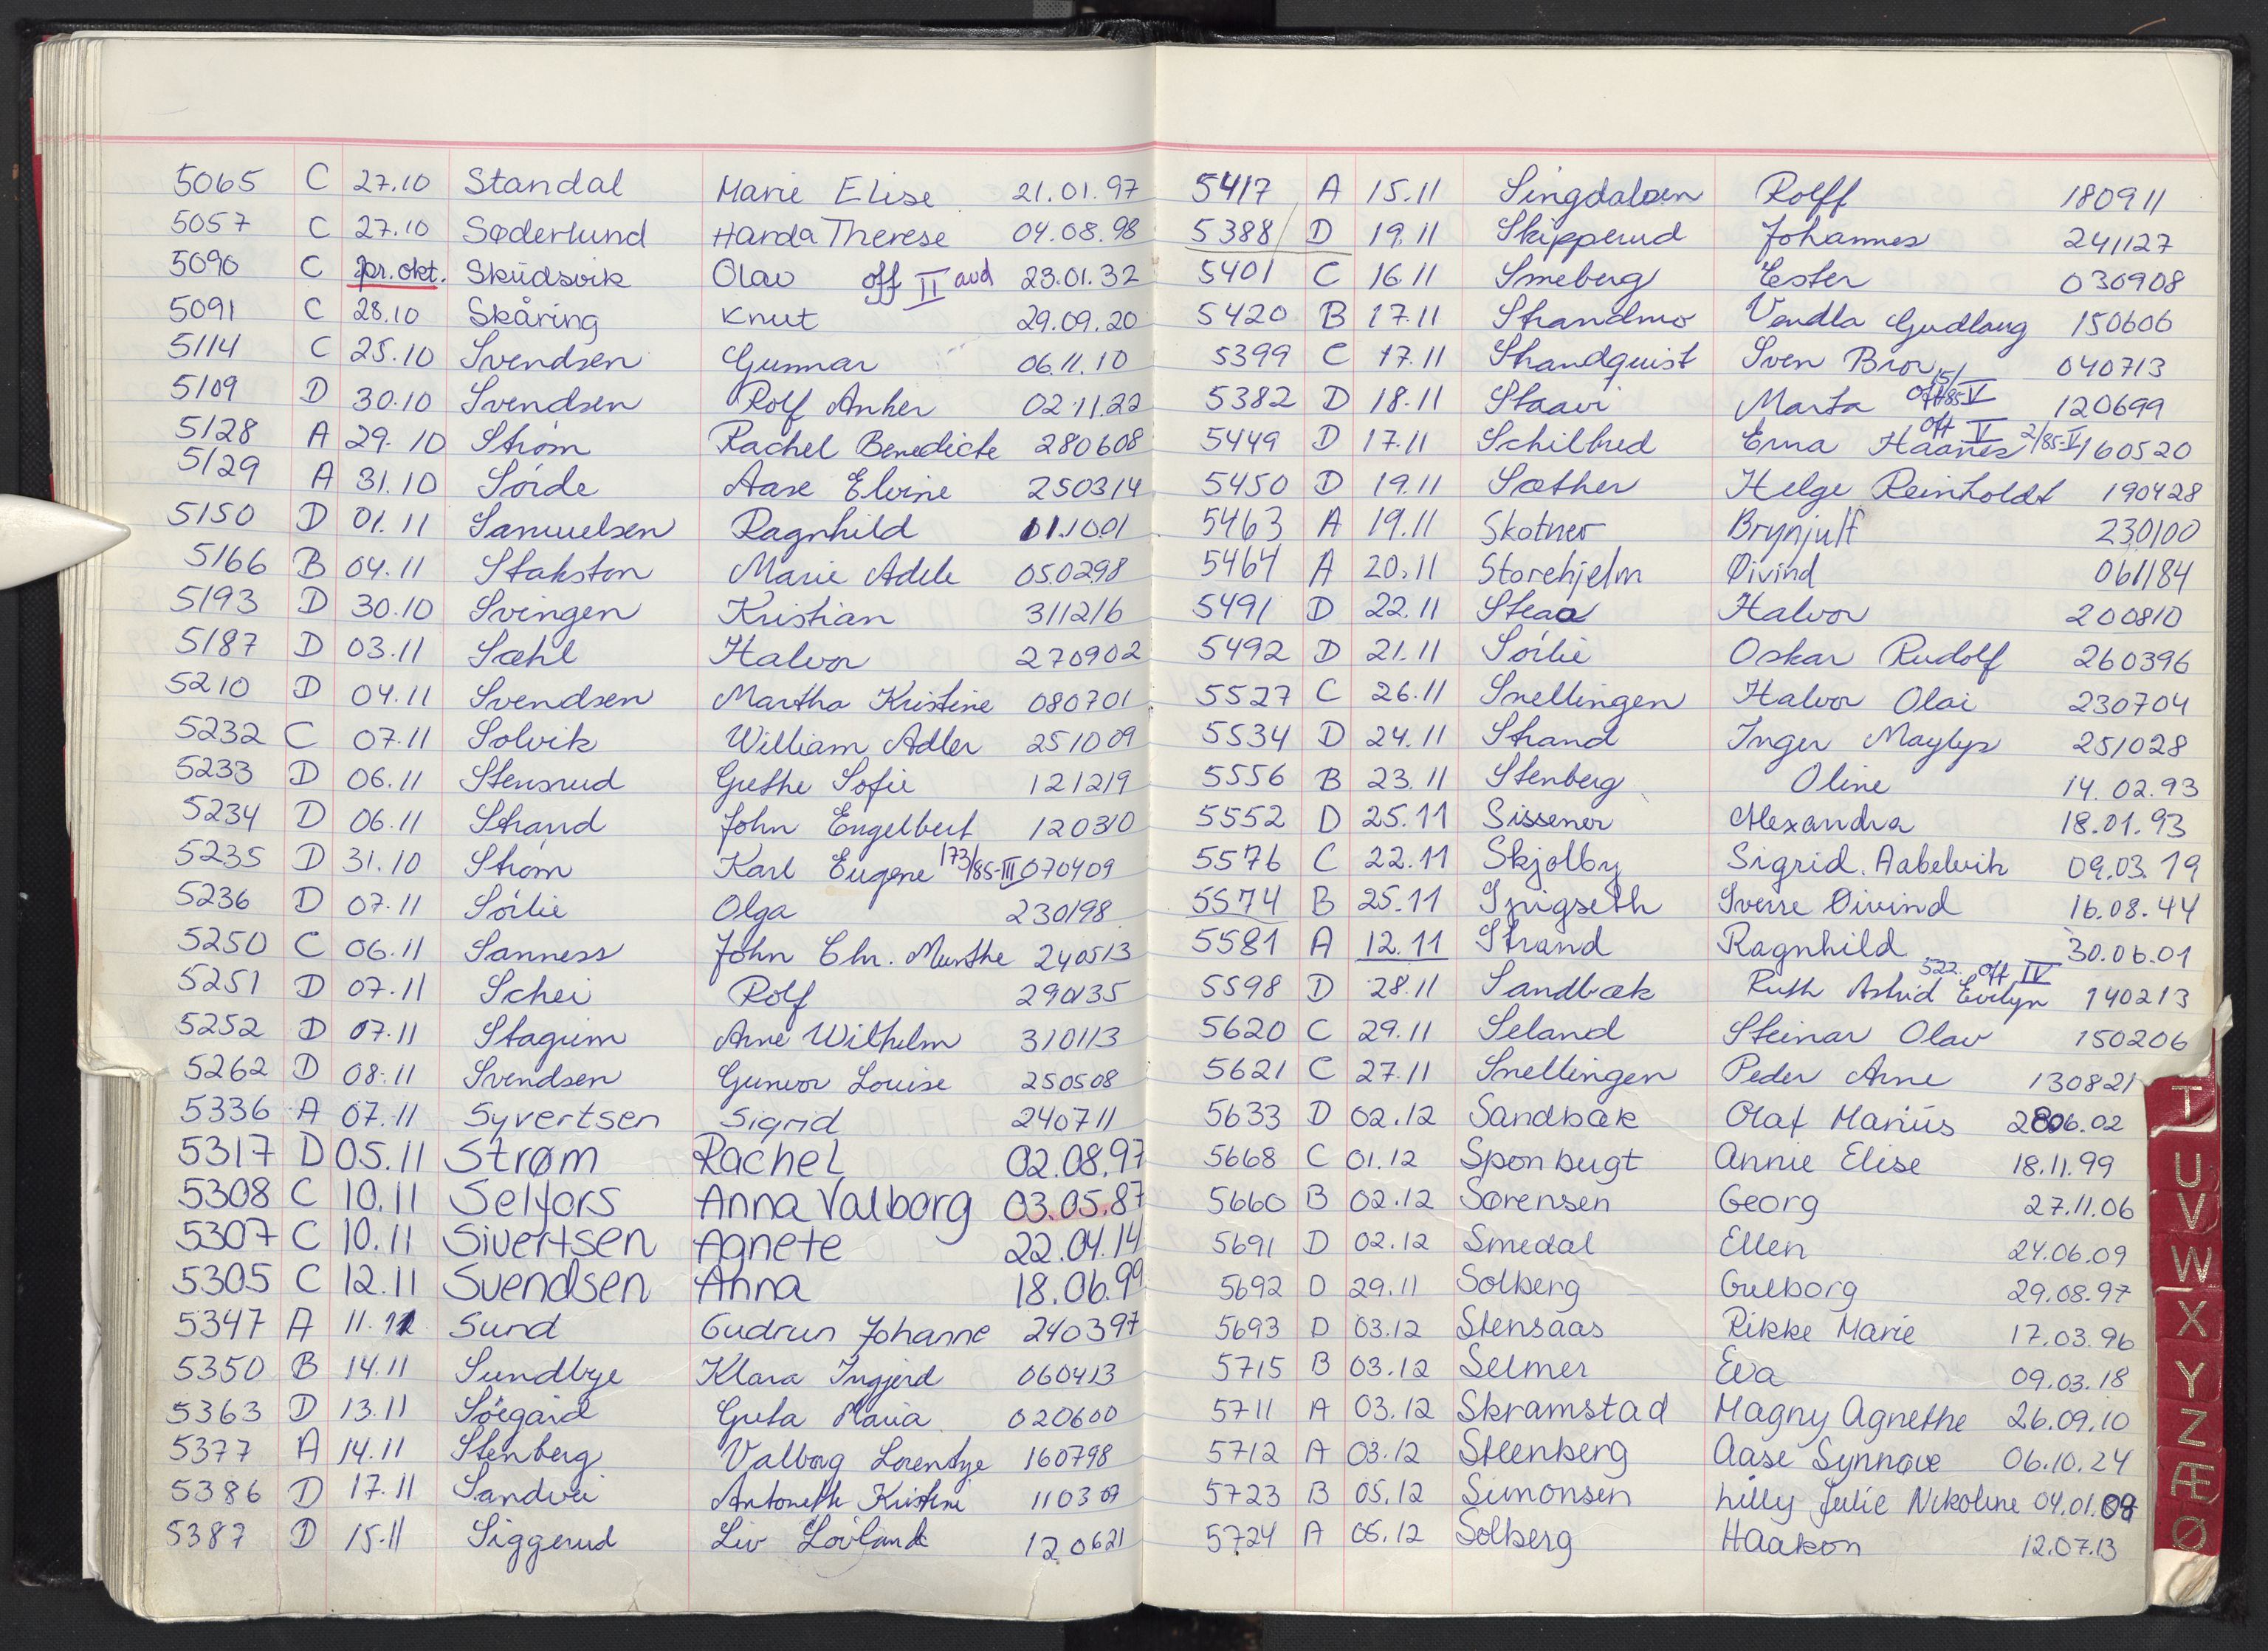 5065 C 27.10 Standal Marie Elise 21.01.97
5057 C 27.10 Søderlund Harda Therese 04.08.98
5090 C pr.okt. Skudsvik Olav off II avd 23.01.32
5091 C 28.10 Skåring Knut 29.09.20
5114 C 25.10 Svendsen Gunnar 06.11.10
5109 D 30.10 Svendsen Rolf Anker 02.11.22
5128 A 29.10 Strøm Rachel Benedicte 280608
5129 A 31.10 Sörde Aase Elvine 250314
5150 D 01.11 Samuelsen Ragnhild 11.10.01
5166 B 04.11 Stakston Marie Adele 050298
5193 D 30.10 Svingen Kristian 311216
5187 D 03.11 Sæhl Halvor 270902
5210 D 04.11 Svendsen Martha Kristine 080701
5232 C 07.11 Solvik William Adler 251009
5233 D 06.11 Stensrud Grethe Sofie 121219
5234 D 06.11 Strand John Engelbert 120310
5235 D 31.10 Strøm Karl Eugene 173/85-III 070409
5236 D 07.11 Sörlie Olga 230198
5250 C 06.11 Sanness John Chr. Munthe 240513
5251 D 07.11 Schei Rolf 290135
5252 D 07.11 Stagrim Arne Wilhelm 310113
5262 D 08.11 Svendsen Gunvor Louise 250508
5336 A 07.11 Syvertsen Sigrid 240711
5317 D 05.11 Strøm Rachel 02.08.97
5308 C 10.11 Selfors Anna Valborg 03.05.87
5307 C 10.11 Sivertsen Agnete 22.04.14
5305 C 12.11 Svendsen Anna 18.06.99
5347 A 11.11 Sund Gudrun Johanne 240397
5350 B 14.11 Sundbye Klara Ingjerd 060413
5363 D 13.11 Söegård Greta Maria 020600
5377 A 14.11 Stenberg Valborg Lorentze 160798
5386 D 17.11 Sandvei Antonette Kristine 110307
5387 D 15.11 Siggerud Liv Lövland 120621
5417 A 15.11 Singdalsen Rolff 180911
5388 D 19.11 Skipperud Johannes 241127
5401 C 16.11 Smeberg Ester 030908
5420 B 17.11 Strandmo Vendla Gudlaug 150606
5399 C 17.11 Strandquist Sven Bror 040713
5382 D 18.11 Staavi Marta 120699
5449 D 17.11 Schilbred Erna Haanes off V 2/85-V 160520
5450 D 19.11 Sæther Helge Reinholdt 190428
5463 A 19.11 Skotner Brynjulf 230100
5464 A 20.11 Storehjelm Øivind 061184
5491 D 22.11 Skaa Halvor 200810
5492 D 21.11 Sörlie Oskar Rudolf 260396
5527 C 26.11 Snellingen Halvor Olai 230704
5534 D 24.11 Strand Inger Maylys 251028
5556 B 23.11 Stenberg Oline 14.02.93
5552 D 25.11 Sissener Alexandra 18.01.93
5576 C 22.11 Skjolby Sigrid. Aabelvik 09.03.19
5574 B 25.11 Sverre Øivind 16.08.44
5581 A 12.11 Strand Ragnhild 30.06.01
5598 D 28.11 Sandbæk Ruth Astrid Evelyn 522 off IV 140213
5620 C 29.11 Seland Steinar Olav 150206
5621 C 27.11 Snellingen Peder Arne 130821
5633 D 02.12 Sandbæk Olaf Marius 2806.02
5668 C 01.12 Sponbugt Annie Elise 18.11.99
5660 B 02.12 Sørensen Georg 27.11.06
5691 D 02.12 Smedal Ellen 24.06.09
5692 D 29.11 Solberg Gulborg 29.08.97
5693 D 03.12 Stensaas Rikke Marie 17.03.96
5715 B 03.12 Selmer Eva 09.03.18
5711 A 03.12 Skramstad Magny Agnethe 26.09.10
5712 A 03.12 Steenberg Aase Synnøve 06.10.24
5723 B 05.12 Simonsen Lilly Julie Nikoline 04.01.09
5724 A 05.12 Solberg Haakon 12.07.13
T
U
V
W
X
Y
Z
Æ
Ø